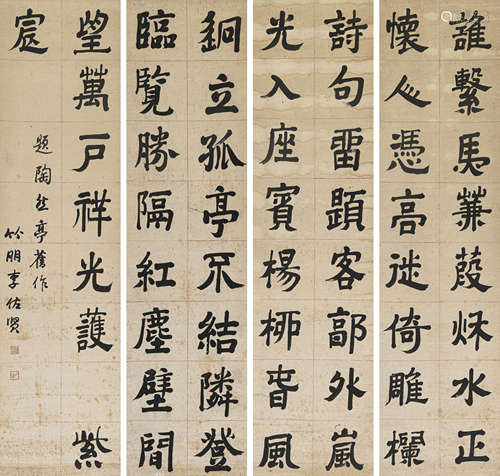 誰繫馬蒹葭秌水正
懷人憑高徙倚雕欄
詩句畱題客郭外嵐
光入座賓楊柳春風
立孤亭不結隣登
臨覽勝隔紅塵壁間
望萬戶祥光護紫
宸
題陶然亭舊作
竹朋李佐賢